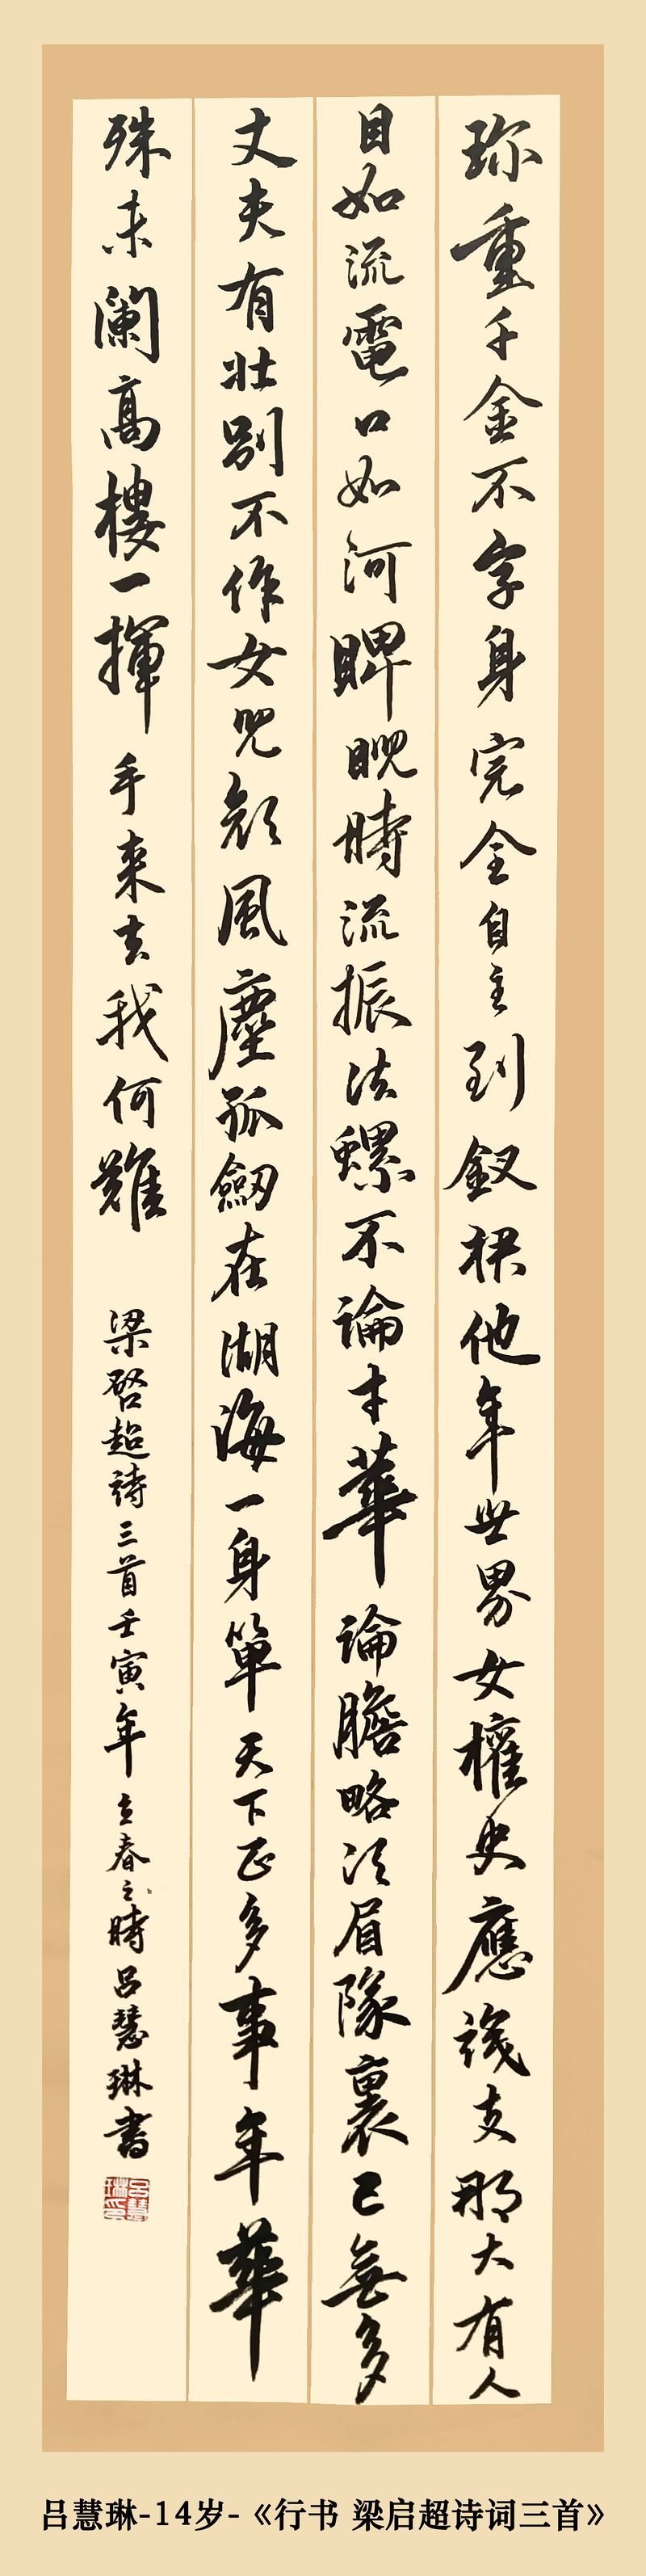 珎重千金不字身完全自主到釵裙他年世界女權史應識支那大有人
目如流電口如河睥睨時流振法螺不論才華論膽略須眉隊裏已無多
丈夫有壯別不作女兒顏風塵孤劒在湖海一身單天下正多事年華
殊未闌高樓一揮手來去我何難 梁啓超詩三首壬寅年立春之時呂慧琳書
呂慧琳印
吕慧琳-14岁-《行书 梁启超诗词三首》